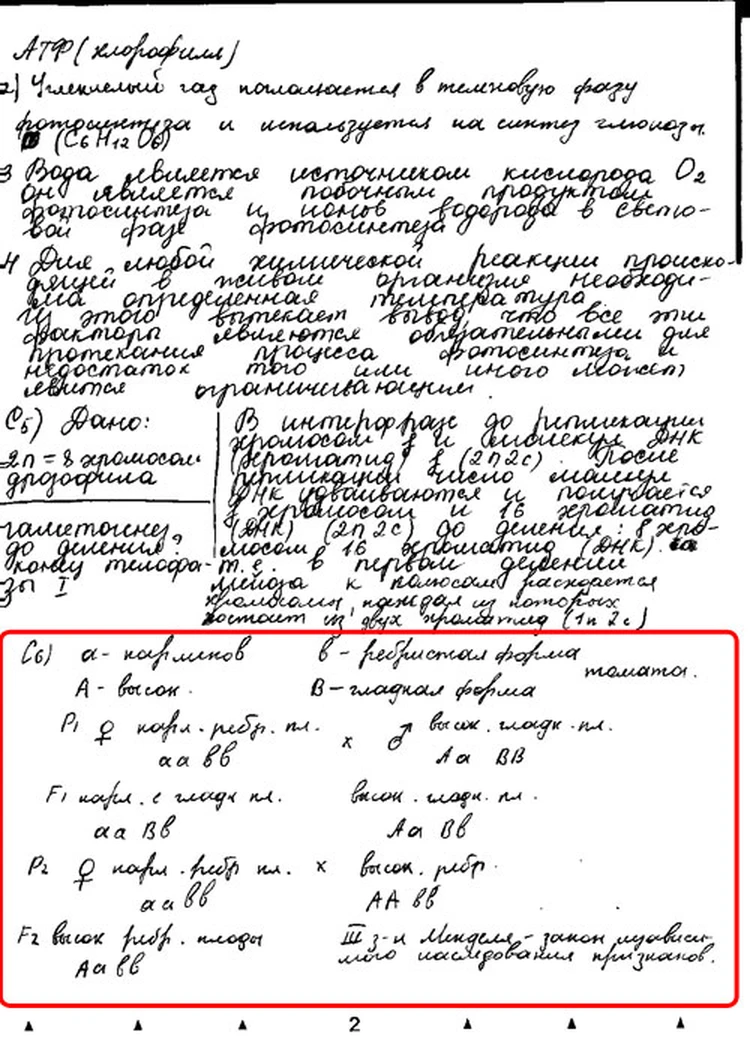 АТФ (хлорофилл)
2) Углекислый газ поглощается в темновую фазу
фотосинтеза и используется на синтез глюкозы.
(C6H12O6)
3 Вода является источником кислорода O2
он является побочным продуктом
фотосинтеза и ионов водорода в свето-
вой фазе фотосинтеза
4 Для любой химической реакции происхо-
дящей в живом организме необходи-
ма определенная температура.
Из этого вытекает вывод, что все эти
факторы являются обязательными для
протекания процесса фотосинтеза и
недостаток того или иного может
явится ограничивающим.
C5) Дано:
2n = 8 хромосом
дрозофила
гаметогенез,
до деления?
концу телофа-
зы I
В интерфазе до репликации
хромосом 8 и молекул ДНК
(хроматид) 8 (2n2c). После
репликации число молекул
ДНК удваиваются и получается
8 хромосом и 16 хроматид
(ДНК) (2n2c) до деления: 8 хро-
мосом 16 хроматид (ДНК).
т.е. в первом делении
мейоза к полюсам расходятся
хромосомы, каждая из которых
состоит из двух хроматид (1n 2c)
C6) a - карликов в - ребристая форма
томата.
A - высок. B - гладкая форма
P1 ♀ карл. ребр. пл. x ♂ высок. гладк. пл.
aa вв Aa BB
F1 карл. с гладк пл. высок. гладк. пл.
aa Bв Aa Bв
P2 ♀ карл. ребр пл. x высок. ребр.
aa вв AA вв
F2 высок ребр. плоды III з-н Менделя - закон независи-
мого наследования признаков.
Aa вв
2